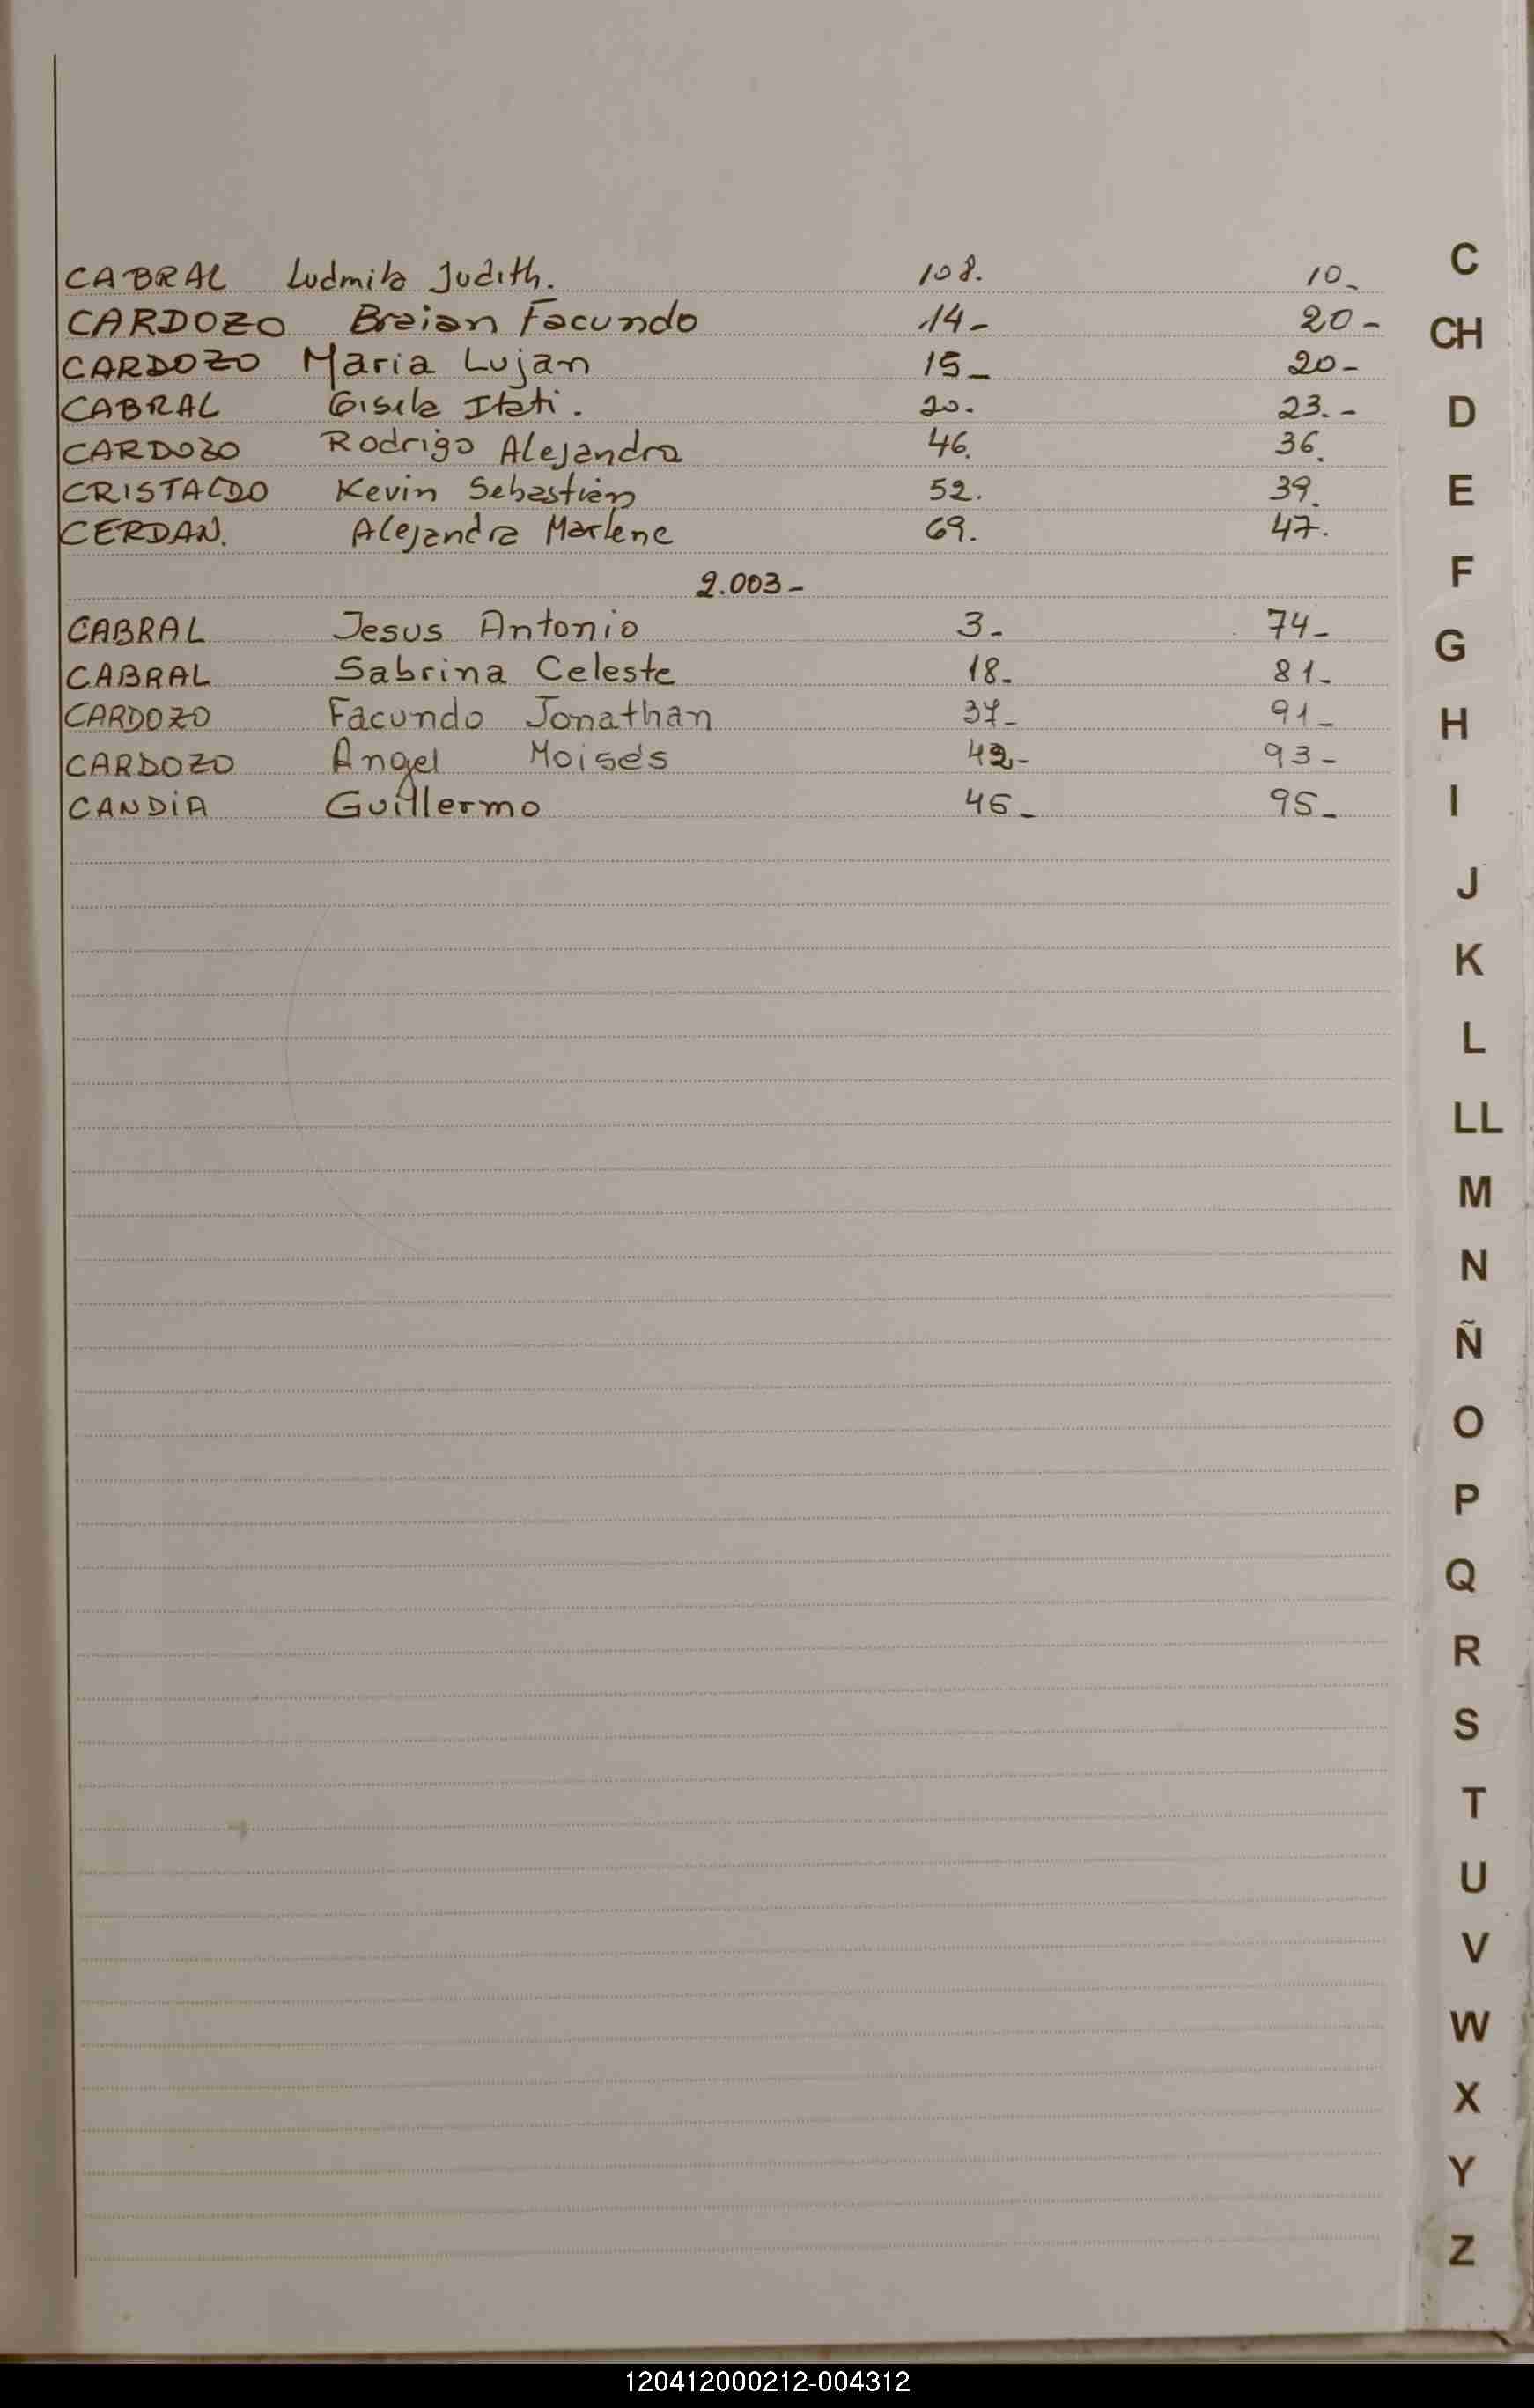 CABRAL Ludmila Judith. 108. 10-
CARDOZO Braian Facundo 14- 20-
CARDOZO Maria Lujan 15- 20-
CABRAL Gisela Itati. 20. 23.-
CARDOZO Rodrigo Alejandro 46. 36.
CRISTALDO Kevin Sebastián 52. 39.
CERDAN. Alejandra Marlene 69. 47.
2.003-
CABRAL Jesus Antonio 3- 74-
CABRAL Sabrina Celeste 18- 81-
CARDOZO Facundo Jonathan 37- 91-
CARDOZO Angel Moisés 42- 93-
CANDIA Guillermo 46- 95-
C
CH
D
E
F
G
H
I
J
K
L
LL
M
N
Ñ
O
P
Q
R
S
T
U
V
W
X
Y
Z
120412000212-004312